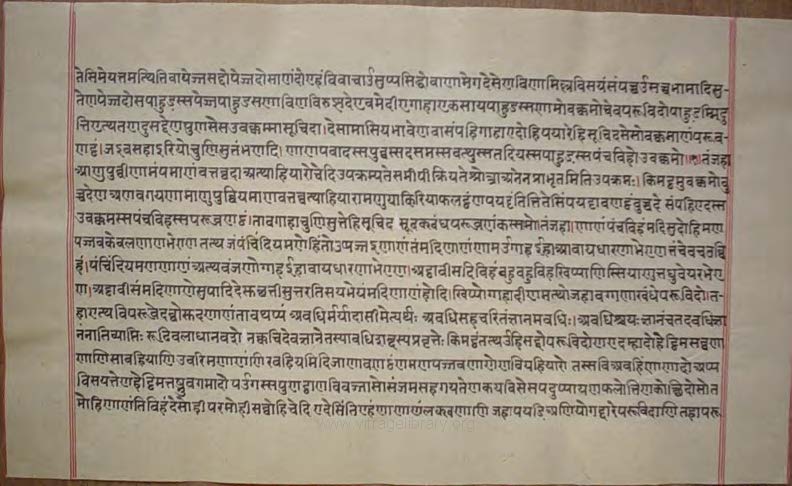 तेसिमेयत्तमत्थित्ति वा पेज्जसद्दो पेज्जदोसाणं दोण्हं वि वाचओ सुप्पसिद्धो वा णामेगदेसेण वि णामिल्लविसयसंपच्चउ सच्चभामादिसु-
तेण पेज्जदोसपाहुडस्स पेज्जपाहुडसण्णा वि ण विरुज्झदे एवमेदीए गाहाए कसायपाहुडस्स णामोवक्कमो चेव परूविदो पाहुडम्मि दु
त्ति एत्थतण दु सद्देण पुण सेसउवक्कमा सूचिदा। देसामासियभावेण वा संपहि गाहाए दोहि पयारेहि सूचिदसेसोवक्कमाणं परूव-
णट्ठं। जइवसहाइरियो चुण्णिसुत्तं भणदि। णाणप्पवादस्स पुव्वस्स दसमस्स वत्थुस्स तदियस्स पाहुडस्स पंचविहो उवक्कमो। तंजहा
आणुपुव्वी णामं पमाणं वत्तव्वदा अत्थाहियारो चेदि उपक्रम्यते समीपीक्रियते श्रोत्रा अनेन प्राभृतमिति उपक्रमः। किमट्ठमुवक्कमो वु
च्चदे ण अणवगयणामाणुपुव्वियमाणवत्तव्वत्थाहियारा मणुया किरियाफलट्ठं ण पयट्टंति त्ति तेसिं पयट्टावणट्ठं वुच्चदे संपहि एदस्स
उवक्कमस्स पंचविहस्स परूवणट्ठं। ताव गाहाचुण्णिसुत्तेहि सूचिद सूवकबंधपरूवणं कस्सामो। तंजहा। णाणं पंचविहं मदिसुदोहिमण
पज्जवकेवलणाणभेएण तत्थ जं पंचिंदियमणेहिंतो उप्पज्जइ णाणं तं मदिणाणं णाम उग्गहईहाआवायधारणाभेएण तं चेव चउव्वि
हं। पंचिंदियमणणाणं अत्थवंजणोग्गहईहावायधारणाभेएण। अट्ठावीसदिविहं बहुबहुविहखिप्पाणिस्सियाणुत्तधुवेयरभेए
ण। अट्ठावीसं मदिणाणेसु पादिदेक्क चत्ती सुत्तरतिसयभेयं मदिणाणं होदि। खिप्पोग्गहादीणमत्थो जहा वग्गणाखंधे परूविदो। त-
हा एत्थ वि परूवेदव्वो सुदणाणं ताव थप्पं अवधिर्मर्यादा सीमेत्यर्थः अवधिसहचरितं ज्ञानमवधिः। अवधिश्च यः ज्ञानं च तदवधिज्ञा
नं नातिव्याप्तिः रूढिबलाधानवशे नक्वचिदेव ज्ञाने तस्यावधिशब्दस्य प्रवृत्तेः किमट्ठं तत्थ ओहिसद्दो परूविदो ण एदम्हादो हेट्ठिमसव्वणा
णाणि सावहियाणि उवरिमणाणं णिरवहियमिदि जाणावणट्ठं ण मणपज्जवणाणेण वियहियारो तस्स वि अवहिणाणादो अप्प
विसयत्तेण हेट्ठिमत्तब्भुवगमादो पओगस्स पुण ट्ठाणविवज्जासो संजमसहगयत्तेण कयविसेसपदुप्पायणफलो त्ति ण कोच्छि दोसो त
मोहिणाणं तिविहं देसोही परमोही सव्वोहि चेदि एदेसिं तिण्हं णाणाण लक्खणाणि जहा पयडिअणियोगद्दारे परूविदाणि तहा परू
www.vitragelibrary.org